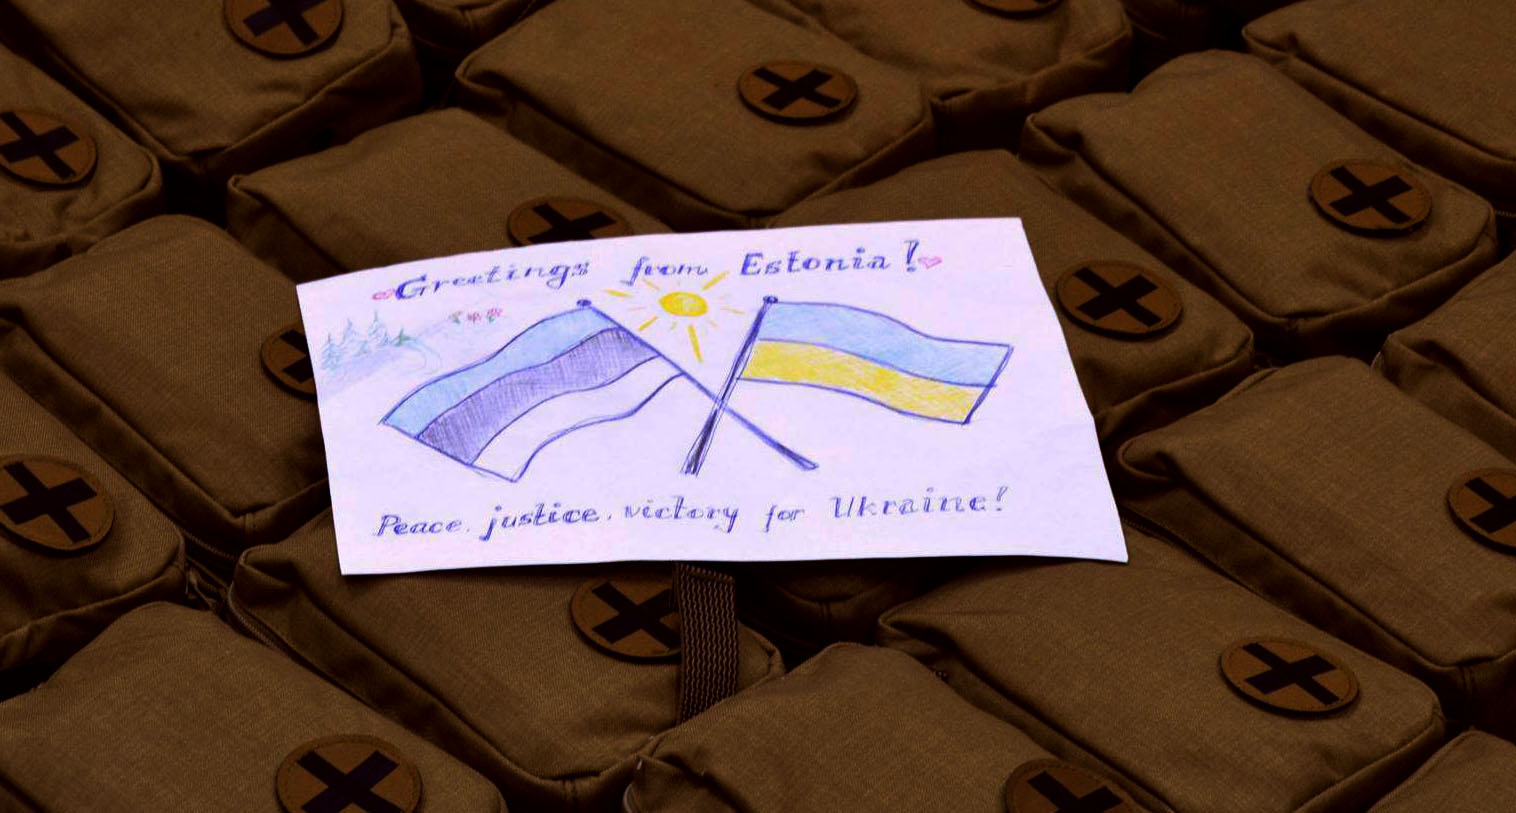 Greetings from Estonia!
Peace, justice, victory for Ukraine!